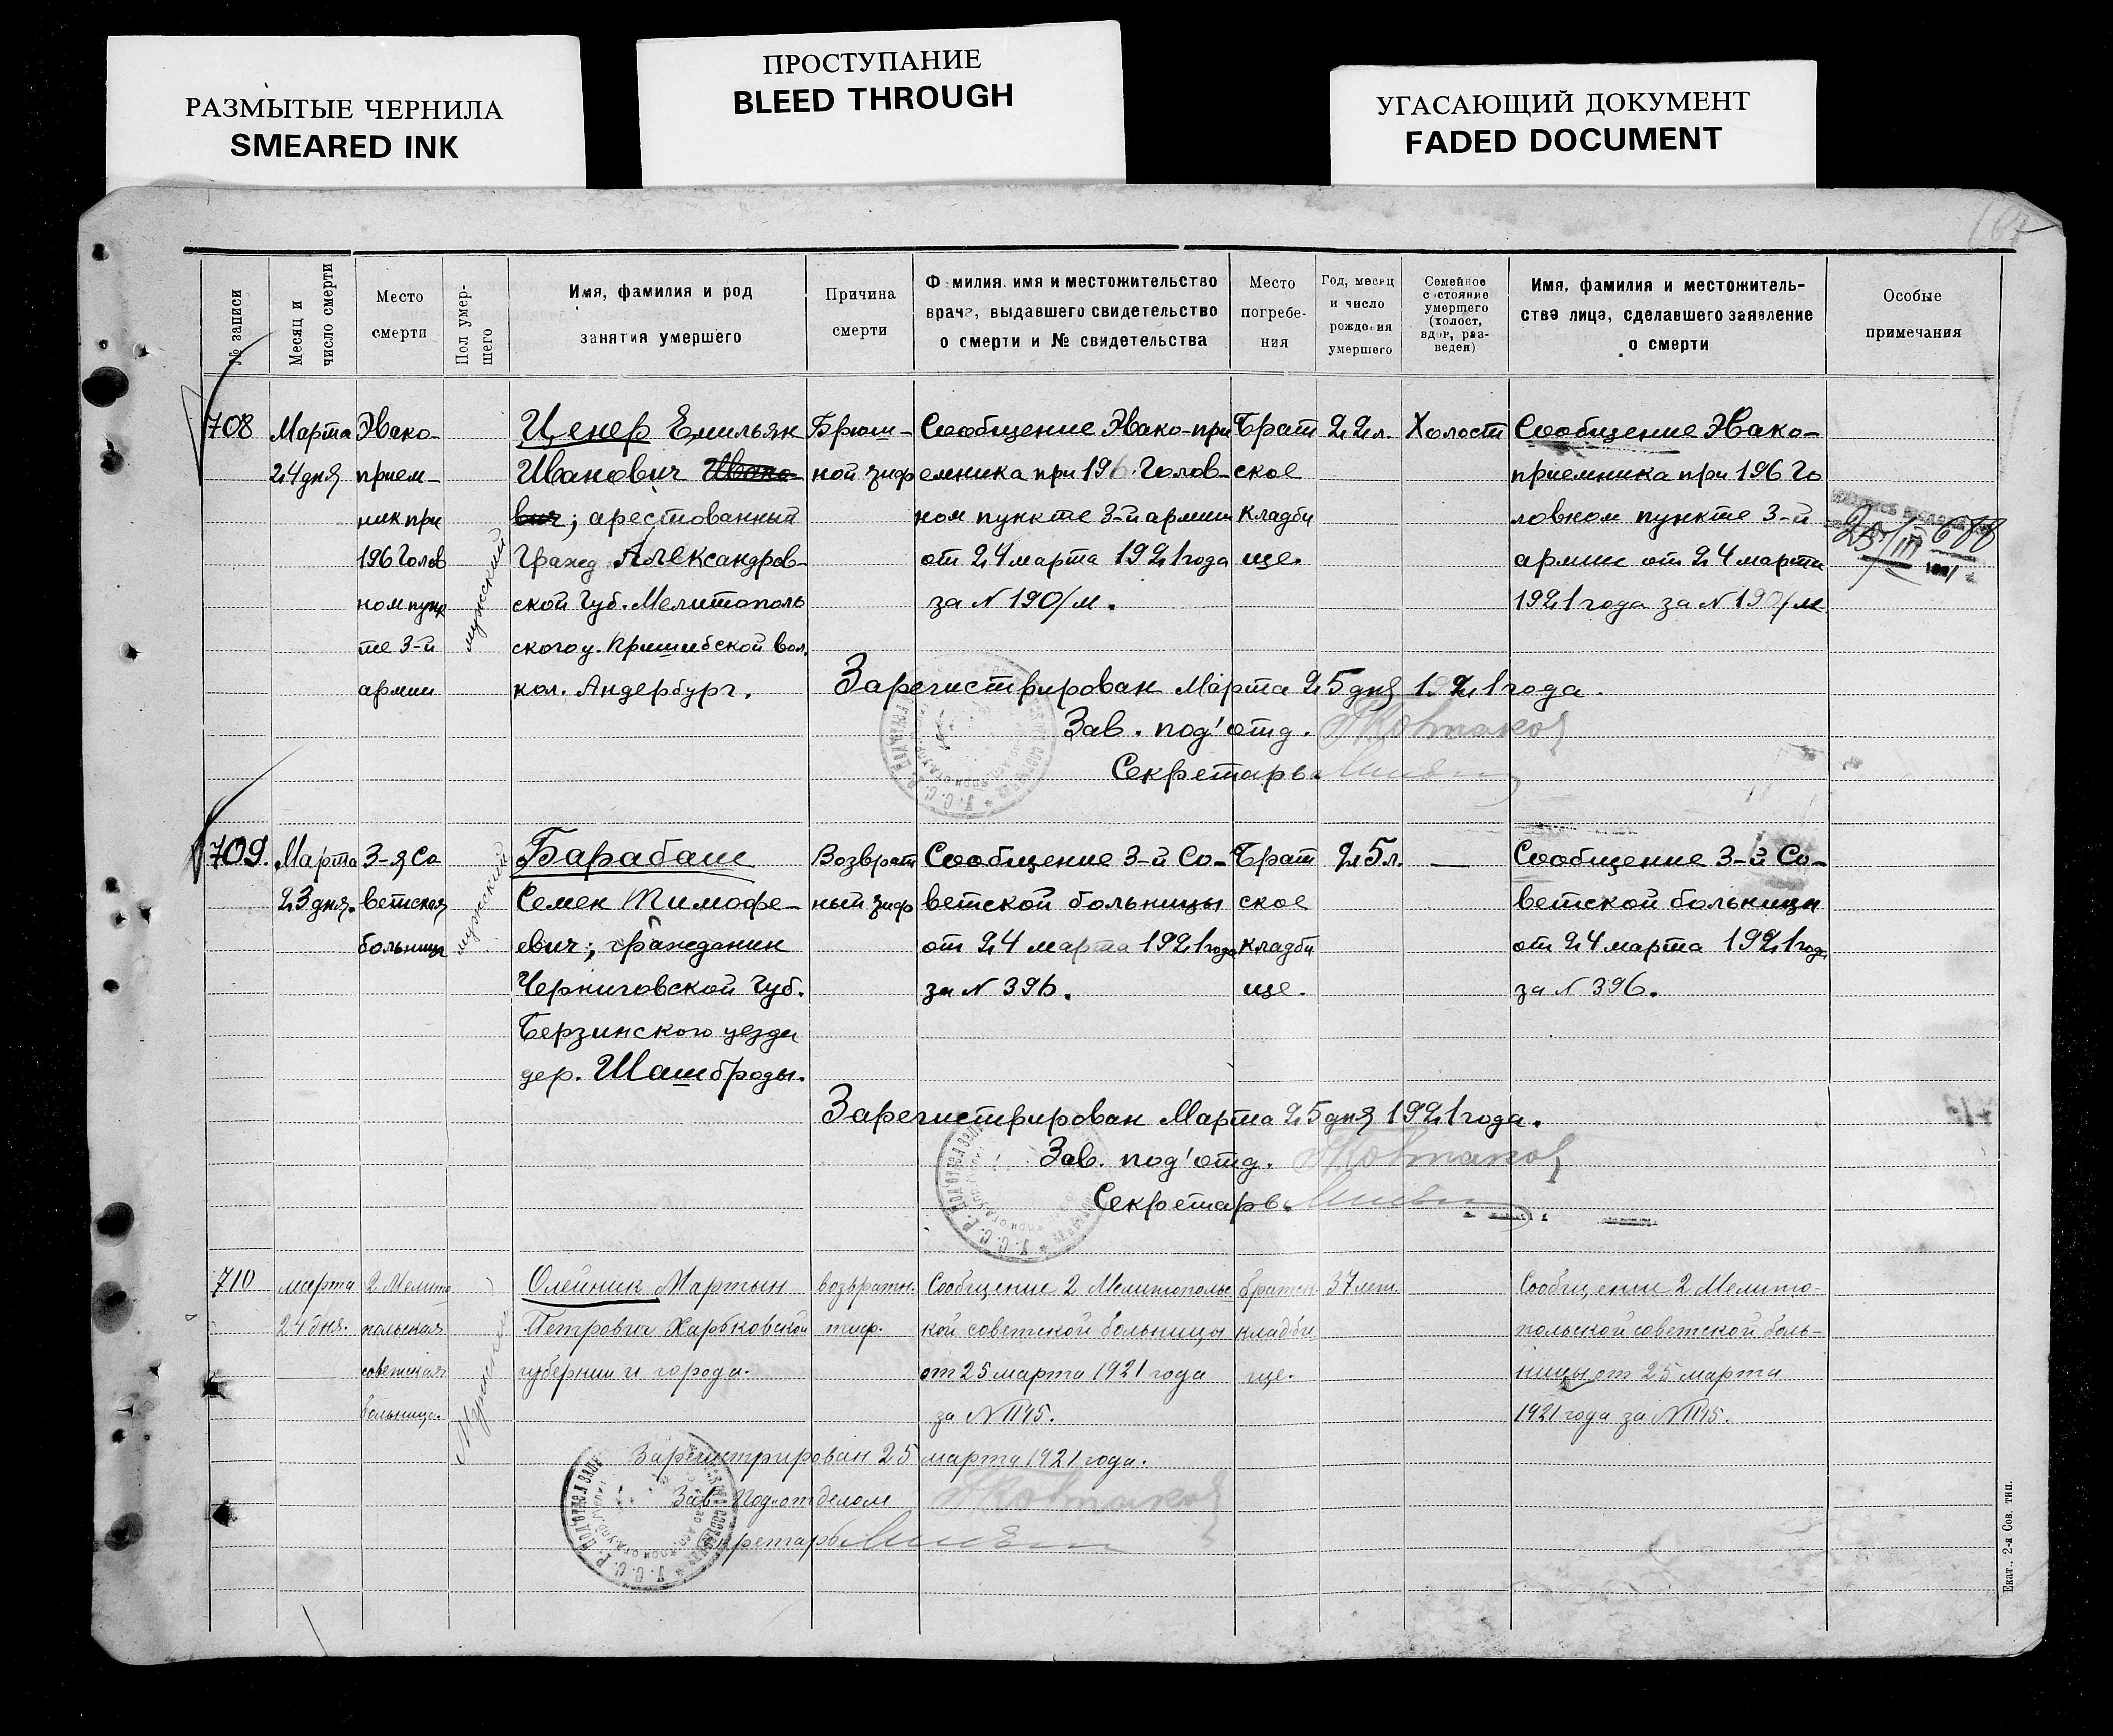 РАЗМЫТЫЕ ЧЕРНИЛА
SMEARED INK
ПРОСТУПАНИЕ
BLEED THROUGH
УГАСАЮЩИЙ ДОКУМЕНТ
FADED DOCUMENT
№ записи
Месяц и
число смерти
Место
смерти
Пол умер-
шего
Имя, фамилия и род
занятия умершего
Причина
смерти
Фамилия, имя и местожительство
врача, выдавшего свидетельство
о смерти и № свидетельства
Место
погребе-
ния
Год, месяц
и число
рождения
умершего
Семейное
состояние
умершего
(холост,
вдов, раз-
веден)
Имя, фамилия и местожитель-
ства лица, сделавшего заявление
о смерти
Особые
примечания
708
Марта
24 дня
Эвако-
прием-
ник при
196 Голов
ном пунк
те 3-й
армии
мужский
Ценер Емильян
Иванович
; арестованный
Гражд Александров-
ской Губ. Мелитополь
ского у. Пришибской вол.
кол. Андербург.
Брюш-
ной тиф
Сообщение Эвако-при
емника при 196 Голов-
ном пункте 3-й армии
от 24 марта 1921 года
за N 190/м.
Брат
ское
кладби
ще.
22 л.
Холост
Сообщение Эвако-
приемника при 196 Го
ловном пункте 3-й
армии от 24 марта
1921 года за N 190/м
25/III 688
Зарегистрирован Марта 25 дня 1921 года.
Зав. под'отд.
Секретарь
709.
Марта
23 дня.
3-я Со
ветская
больница
мужский
Барабаш
Семен Тимофе-
евич; гражданин
Черниговской Губ.
Берзинского уезда
дер. Шашброды.
Возврат
ный тиф
Сообщение 3-й Со-
ветской больницы
от 24 марта 1921 года
за N 396.
Брат
ское
кладби
ще.
25 л.
—
Сообщение 3-й Со-
ветской больницы
от 24 марта 1921 года
за N 396.
Зарегистрирован Марта 25 дня 1921 года.
Зав. под'отд.
Секретарь.
710
марта
24 дня.
2 Мелито
польская
советская
больница.
Олейник Мартын
Петрович Харьковской
губернии и города.
возвратн.
тиф.
Сообщение 2 Мелитопольс
кой советской больницы
от 25 марта 1921 года
за N 1145.
братск.
кладби
ще.
37 лет
Сообщение 2 Мелито-
польской советской боль-
ницы от 25 марта
1921 года за N 1145.
Зарегистрирован 25 марта 1921 года.
Зав. Подотделом
Секретарь
Екат., 2-я Сов. тип.